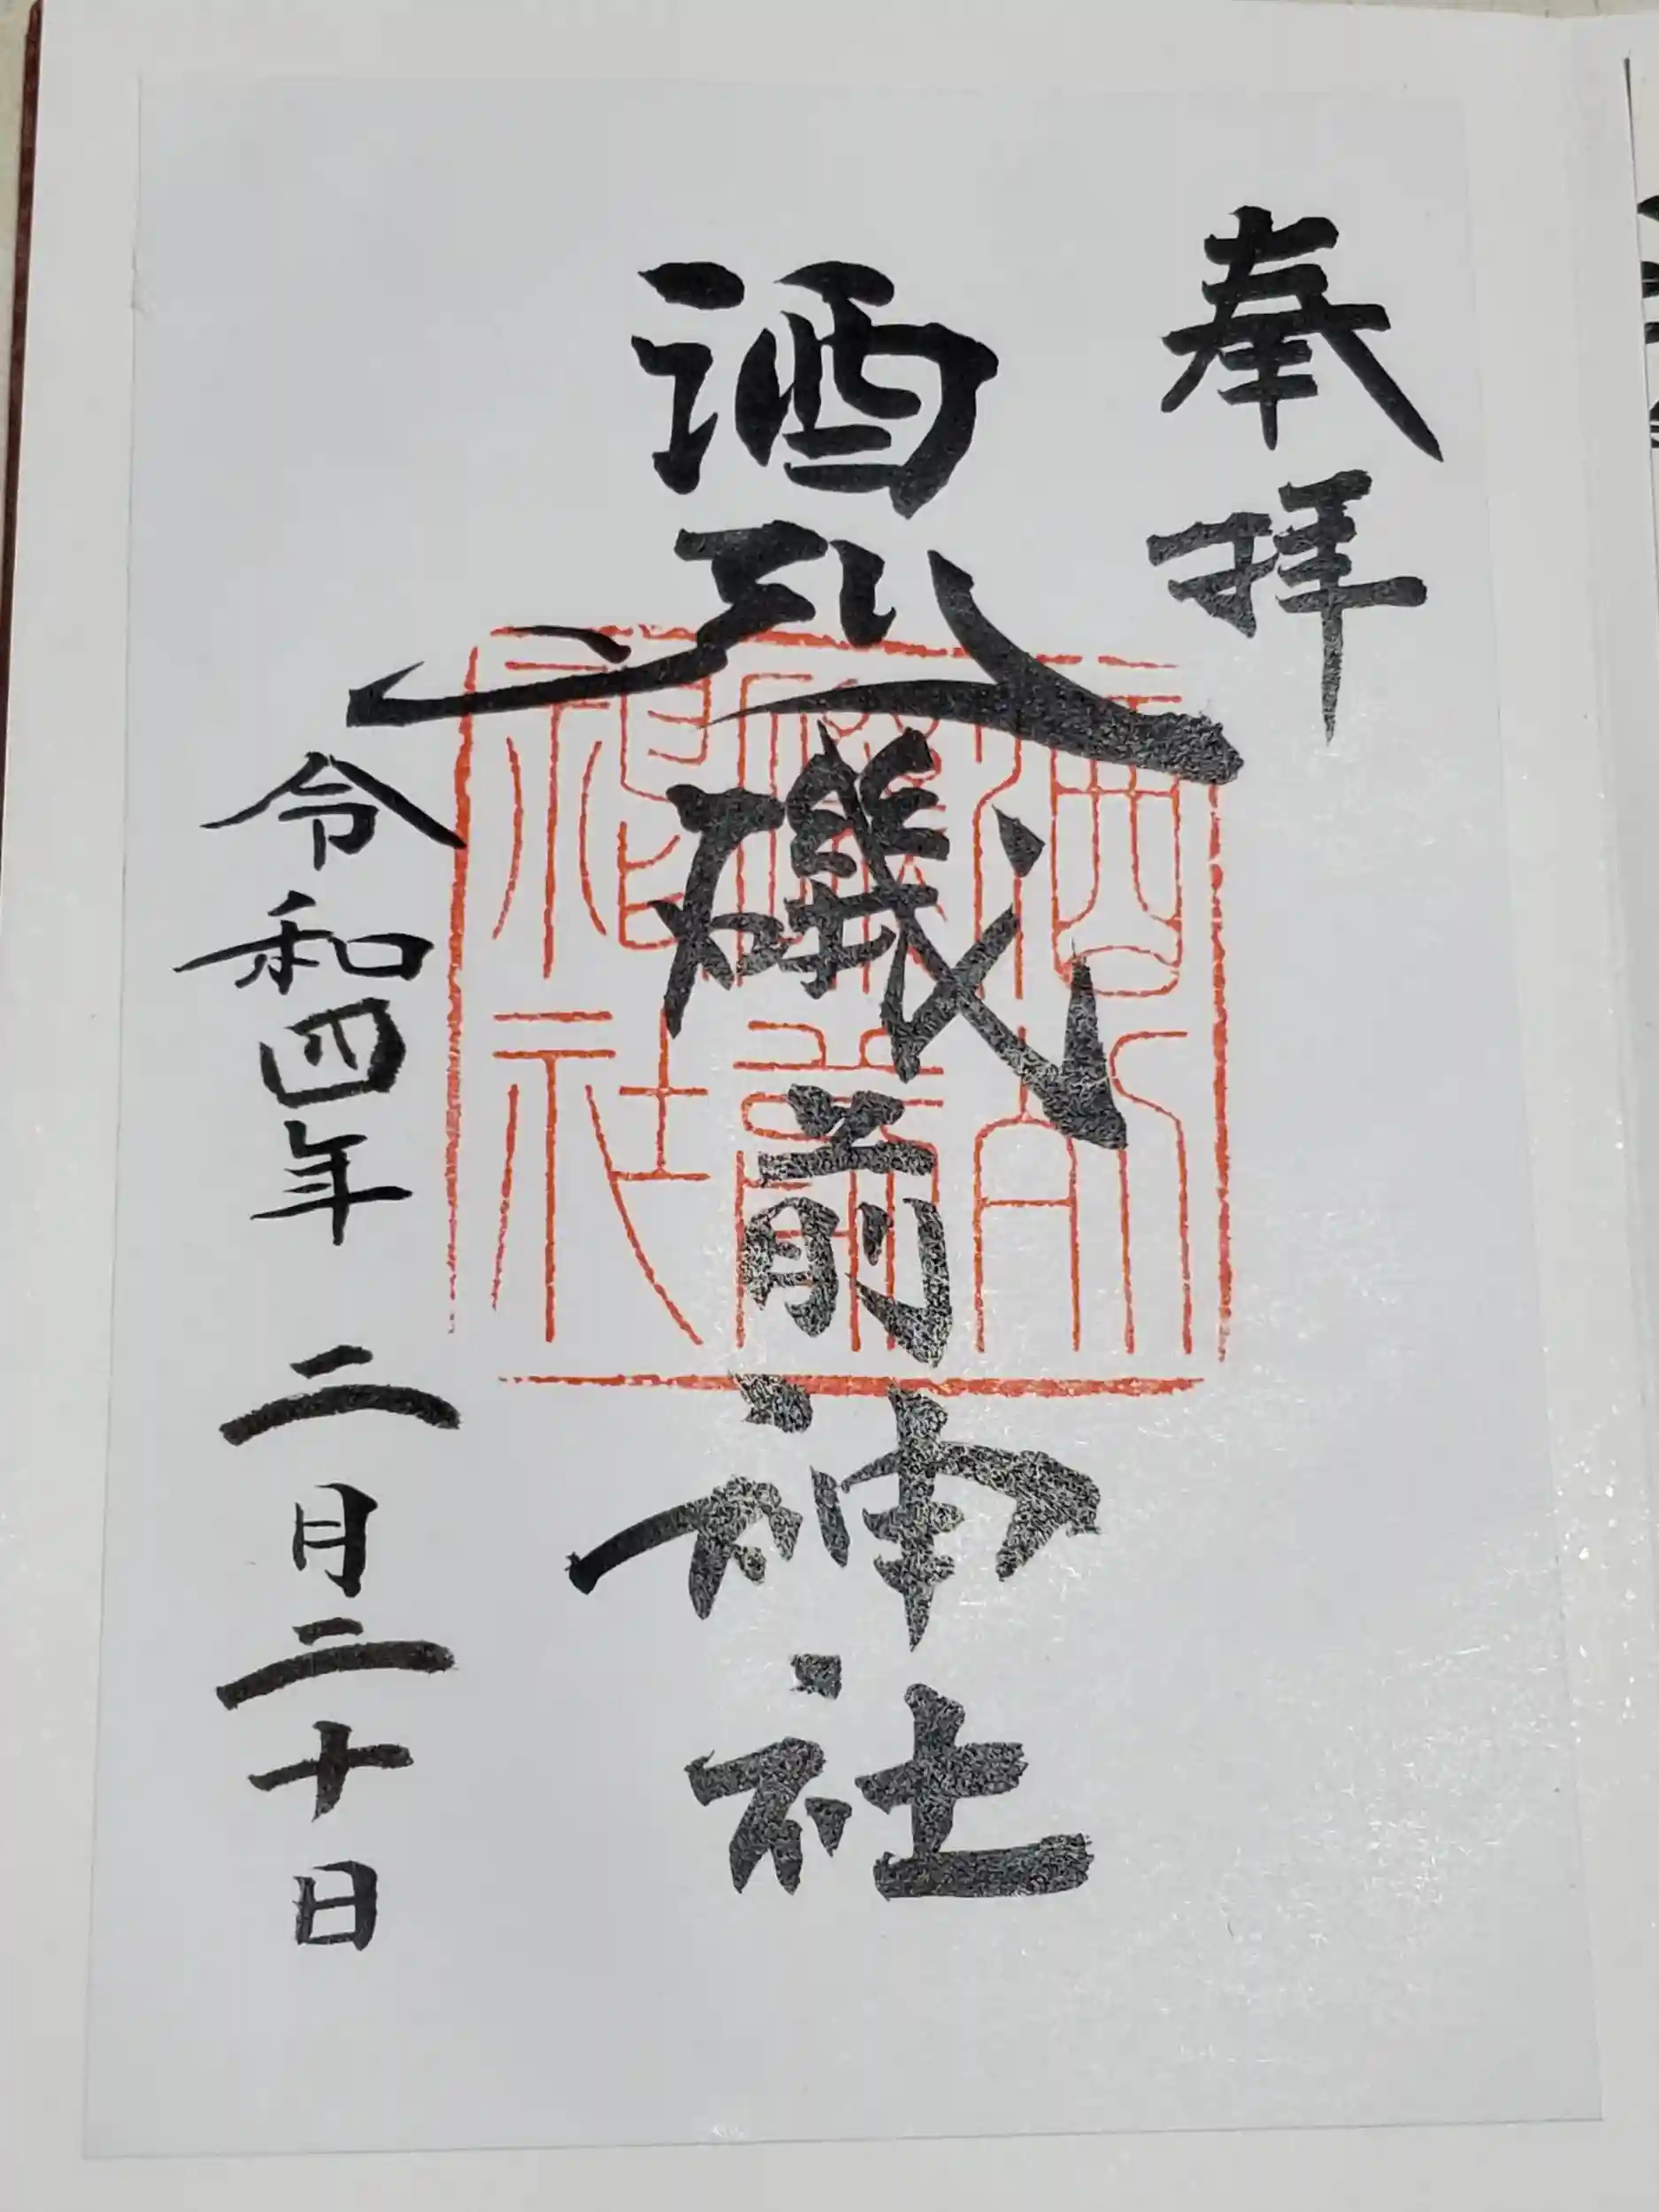 奉拝
酒列磯前神社
令和四年二月二十日
酒列
磯前
神社